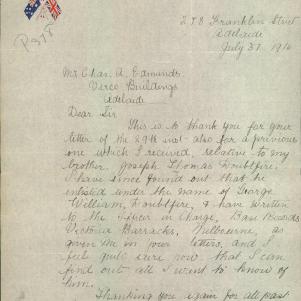 278 Franklin Street
Adelaide
July 31 1916
Mr Chas. A. Edmunds
Verco Buildings
Adelaide
Dear Sir
This is to thank you for your
letter of the 29th inst also for a previous
one which I received, relative to my
brother Joseph Thomas Doubtfire,
I have since found out that he
enlisted under the name of George
William, Doubtfire, & have written
to the Officer in Charge, Base Records
Victoria Barracks, Melbourne, as
given me in your letters, and I
feel quite sure now that I can
find out all I want to know of
him.
Thanking you again for all past